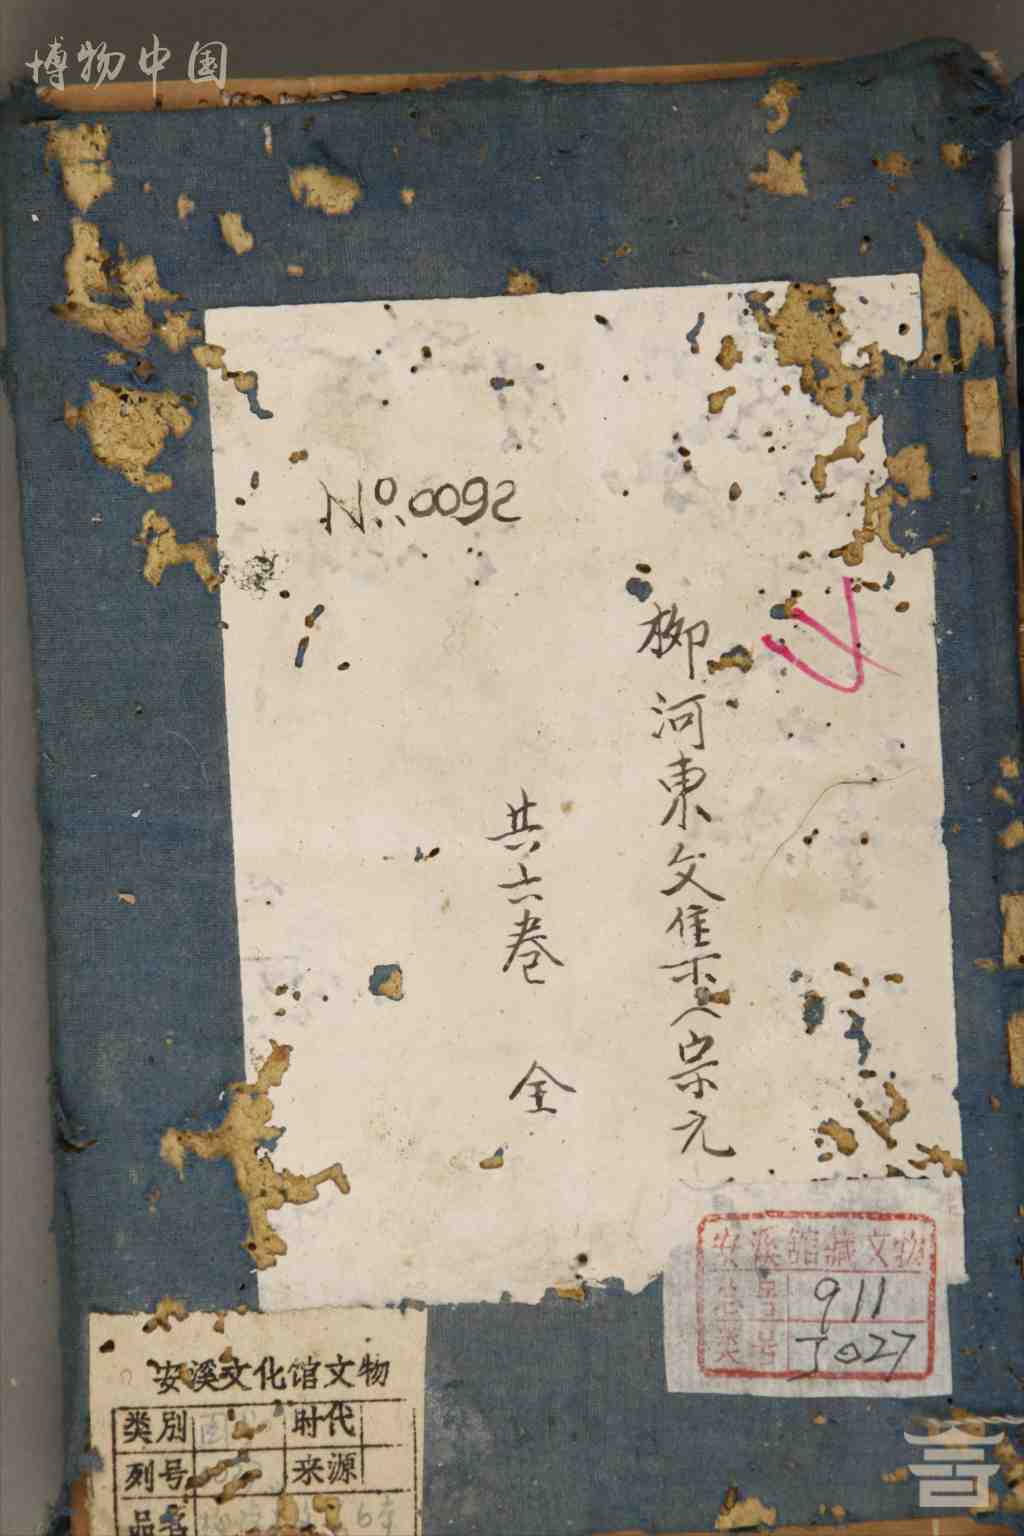 博物中国
No.0092
柳河東文集
宗元
共六卷 全
安溪馆藏文物
总号 911
类号 J027
安溪文化馆文物
类別 时代
列号 来源
品名 6本